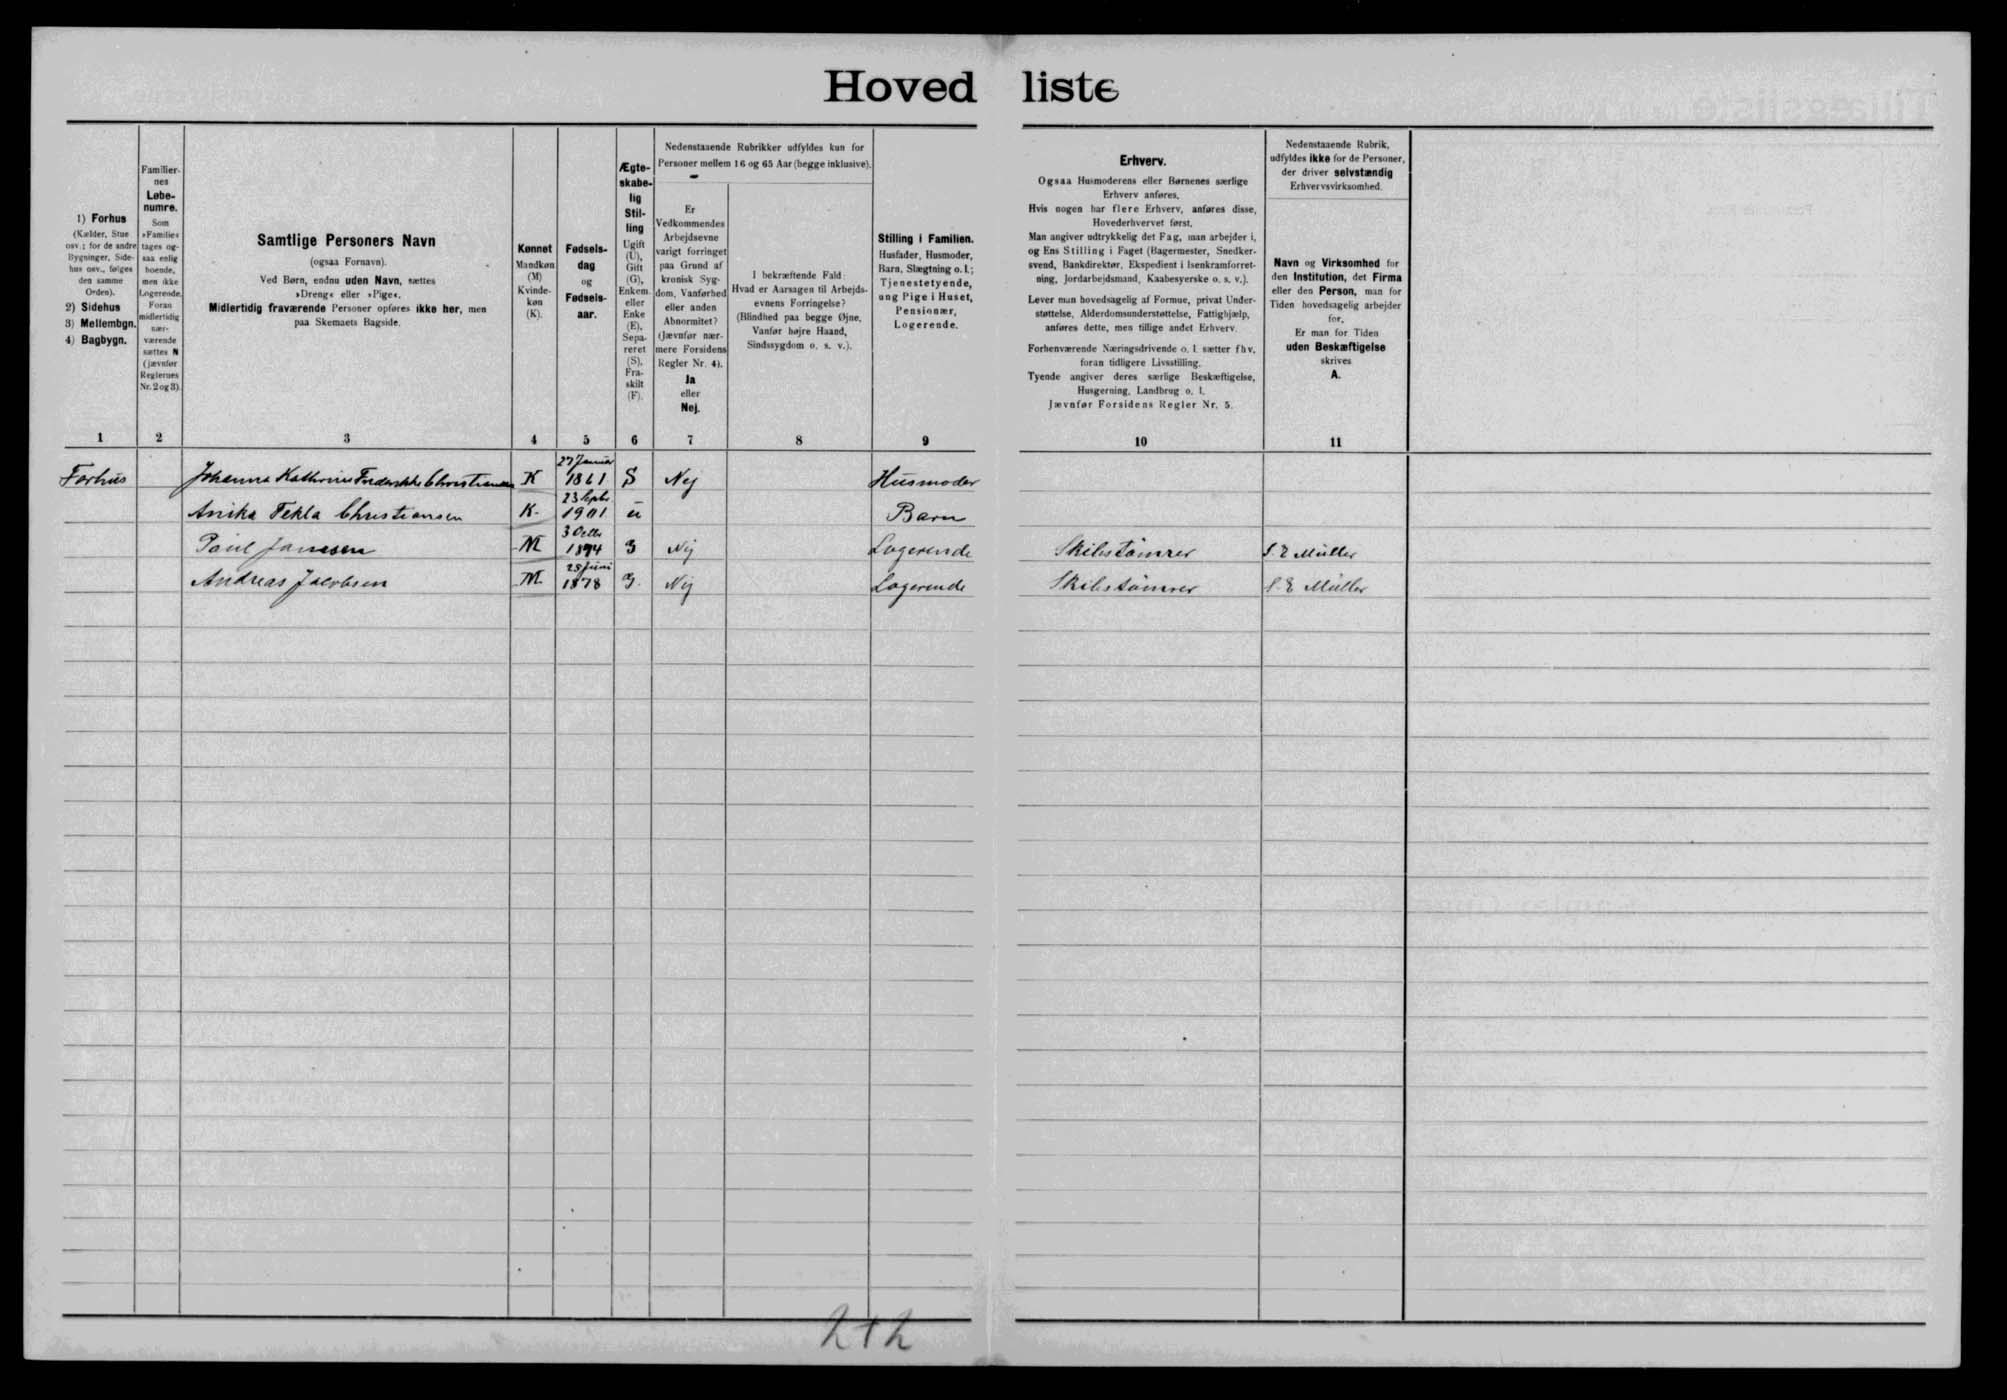 Hovedliste
1) Forhus
(Kælder, Stue
osv.; for de andre
Bygninger, Side-
hus osv., følges
den samme
Orden).
2) Sidehus
3) Mellembgn.
4) Bagbygn.
Familier-
nes
Løbe-
numre.
Som
»Familie«
tages og-
saa enlig
boende,
men ikke
Logerende.
Foran
midlertidig
nær-
værende
sættes N
(jævnfør
Reglernes
Nr. 2 og 3).
Samtlige Personers Navn
(ogsaa Fornavn).
Ved Børn, endnu uden Navn, sættes
»Dreng« eller »Pige«.
Midlertidig fraværende Personer opføres ikke her, men
paa Skemaets Bagside.
Kønnet
Mandkøn
(M)
Kvinde-
køn
(K).
Fødsels-
dag
og
Fødsels-
aar.
Ægte-
skabe-
lig
Stil-
ling
Ugift
(U),
Gift
(G),
Enkem.
eller
Enke
(E),
Sepa-
reret
(S),
Fra-
skilt
(F).
Nedenstaaende Rubrikker udfyldes kun for
Personer mellem 16 og 65 Aar (begge inklusive).
Er
Vedkommendes
Arbejdsevne
varigt forringet
paa Grund af
kronisk Syg-
dom, Vanførhed
eller anden
Abnormitet?
(Jævnfør nær-
mere Forsidens
Regler Nr. 4).
Ja
eller
Nej.
I bekræftende Fald:
Hvad er Aarsagen til Arbejds-
evnens Forringelse?
(Blindhed paa begge Øjne,
Vanfør højre Haand,
Sindssygdom o. s. v.).
Stilling i Familien.
Husfader, Husmoder,
Barn, Slægtning o. l.;
Tjenestetyende,
ung Pige i Huset,
Pensionær,
Logerende.
Erhverv.
Ogsaa Husmoderens eller Børnenes særlige
Erhverv anføres.
Hvis nogen har flere Erhverv, anføres disse,
Hovederhvervet først.
Man angiver udtrykkelig det Fag, man arbejder i,
og Ens Stilling i Faget (Bagermester, Snedker-
svend, Bankdirektør, Ekspedient i Isenkramforret-
ning, Jordarbejdsmand, Kaabesyerske o. s. v.).
Lever man hovedsagelig af Formue, privat Under-
støttelse, Alderdomsunderstøttelse, Fattighjælp,
anføres dette, men tillige andet Erhverv.
Forhenværende Næringsdrivende o. l. sætter fhv.
foran tidligere Livsstilling.
Tyende angiver deres særlige Beskæftigelse,
Husgerning, Landbrug o. l.
Jævnfør Forsidens Regler Nr. 5.
Nedenstaaende Rubrik,
udfyldes ikke for de Personer,
der driver selvstændig
Erhvervsvirksomhed.
Navn og Virksomhed for
den Institution, det Firma
eller den Person, man for
Tiden hovedsagelig arbejder
for.
Er man for Tiden
uden Beskæftigelse
skrives
A.
1 2 3 4 5 6 7 8 9 10 11
Forhus Johanna Kathrine Frederikke Christiansen K 27 Januar 1861 S Nej Husmoder
Anika Tekla Christiansen K. 23 Sptr 1901 u Barn
Paul Janssen M 3 Octbr 1874 G Nej Logerende Skibstømrer S. E Müller
Andreas Jacobsen M 28 Juni 1878 G. Nej Logerende Skibstømrer S. E Müller
2+2